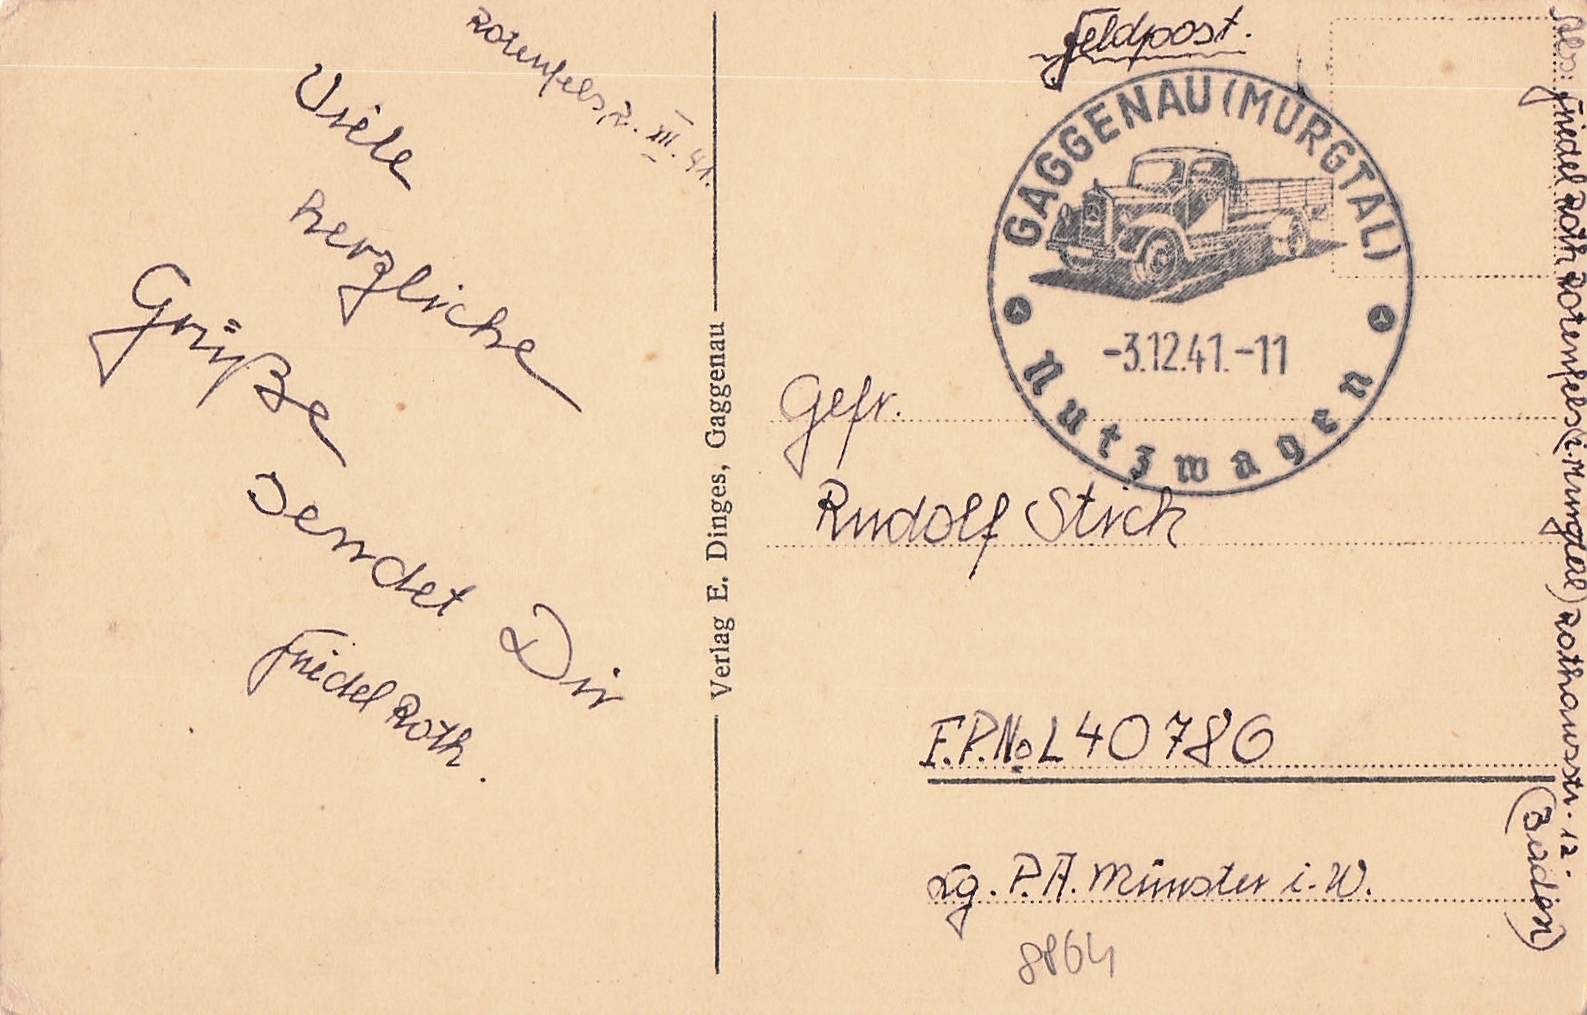 Rotenfels, 2. XII. 41.
Viele
herzliche
Grüße
sendet Dir
Friedel Roth.
Verlag E. Dinges, Gaggenau
Feldpost.
GAGGENAU (MURGTAL)
-3.12.41.-11
Nutzwagen
Gefr.
Rudolf Stich
F.P.No L 40786
Lg. P.A. Münster i. W.
8864
Abs: Friedel Roth Rotenfels (i. Murgtal) Rothausstr. 12.
(Baden)